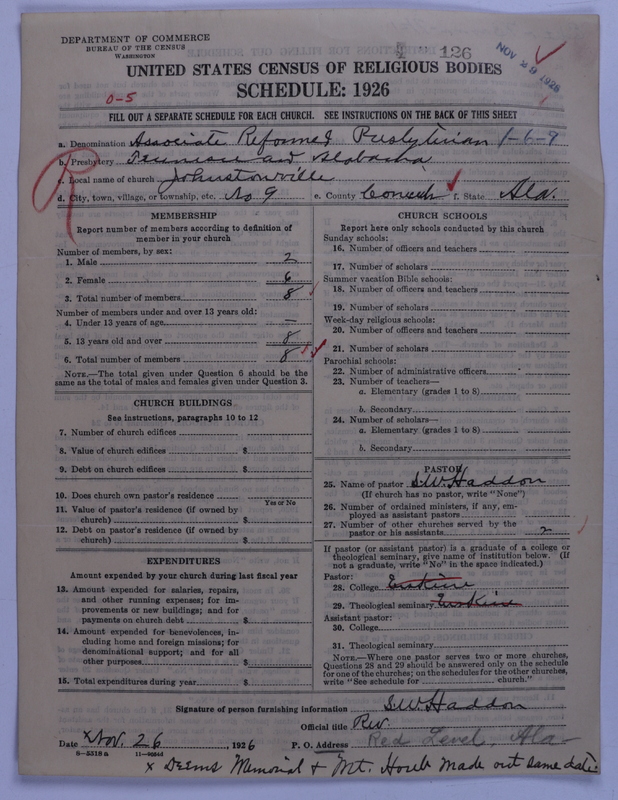 DEPARTMENT OF COMMERCE
BUREAU OF THE CENSUS
WASHINGTON
126
NOV 29 1926
UNITED STATES CENSUS OF RELIGIOUS BODIES
SCHEDULE: 1926
0-5
FILL OUT A SEPARATE SCHEDULE FOR EACH CHURCH. SEE INSTRUCTIONS ON THE BACK OF THIS SHEET
R
a. Denomination Associate Reformed Presbyterian 1-6-9
b. Presbytery Tennessee and Alabama
c. Local name of church Johnstonville
d. City, town, village, or township, etc. No 9 e. County Conecuh f. State Ala.
MEMBERSHIP
Report number of members according to definition of
member in your church
Number of members, by sex:
1. Male 2
2. Female 6
3. Total number of members 8
Number of members under and over 13 years old:
4. Under 13 years of age —
5. 13 years old and over 8
6. Total number of members 8
NOTE.—The total given under Question 6 should be the
same as the total of males and females given under Question 3.
CHURCH BUILDINGS
See instructions, paragraphs 10 to 12
7. Number of church edifices
8. Value of church edifices $
9. Debt on church edifices $
10. Does church own pastor's residence
Yes or No
11. Value of pastor's residence (if owned by
church) $
12. Debt on pastor's residence (if owned by
church) $
EXPENDITURES
Amount expended by your church during last fiscal year
13. Amount expended for salaries, repairs,
and other running expenses; for im-
provements or new buildings; and for
payments on church debt $
14. Amount expended for benevolences, in-
cluding home and foreign missions; for
denominational support; and for all
other purposes $
15. Total expenditures during year $
CHURCH SCHOOLS
Report here only schools conducted by this church
Sunday schools:
16. Number of officers and teachers
17. Number of scholars
Summer vacation Bible schools:
18. Number of officers and teachers
19. Number of scholars
Week-day religious schools:
20. Number of officers and teachers
21. Number of scholars
Parochial schools:
22. Number of administrative officers
23. Number of teachers—
a. Elementary (grades 1 to 8)
b. Secondary
24. Number of scholars—
a. Elementary (grades 1 to 8)
b. Secondary
PASTOR
25. Name of pastor S.W. Haddon
(If church has no pastor, write "None")
26. Number of ordained ministers, if any, em-
ployed as assistant pastors
27. Number of other churches served by the
pastor or his assistants 2
If pastor (or assistant pastor) is a graduate of a college or
theological seminary, give name of institution below. (If
not a graduate, write "No" in the space indicated.)
Pastor:
28. College Erskine
29. Theological seminary Erskine
Assistant pastor:
30. College
31. Theological seminary
NOTE.—Where one pastor serves two or more churches,
Questions 28 and 29 should be answered only on the schedule
for one of the churches; on the schedules for the other churches,
write "See schedule for church."
Signature of person furnishing information S.W. Haddon
Official title Rev
Date x Nov. 26, 1926 P. O. Address Red Level, Ala-
8-5518 a
x Deems Memorial & Mt. Horeb made out same date.